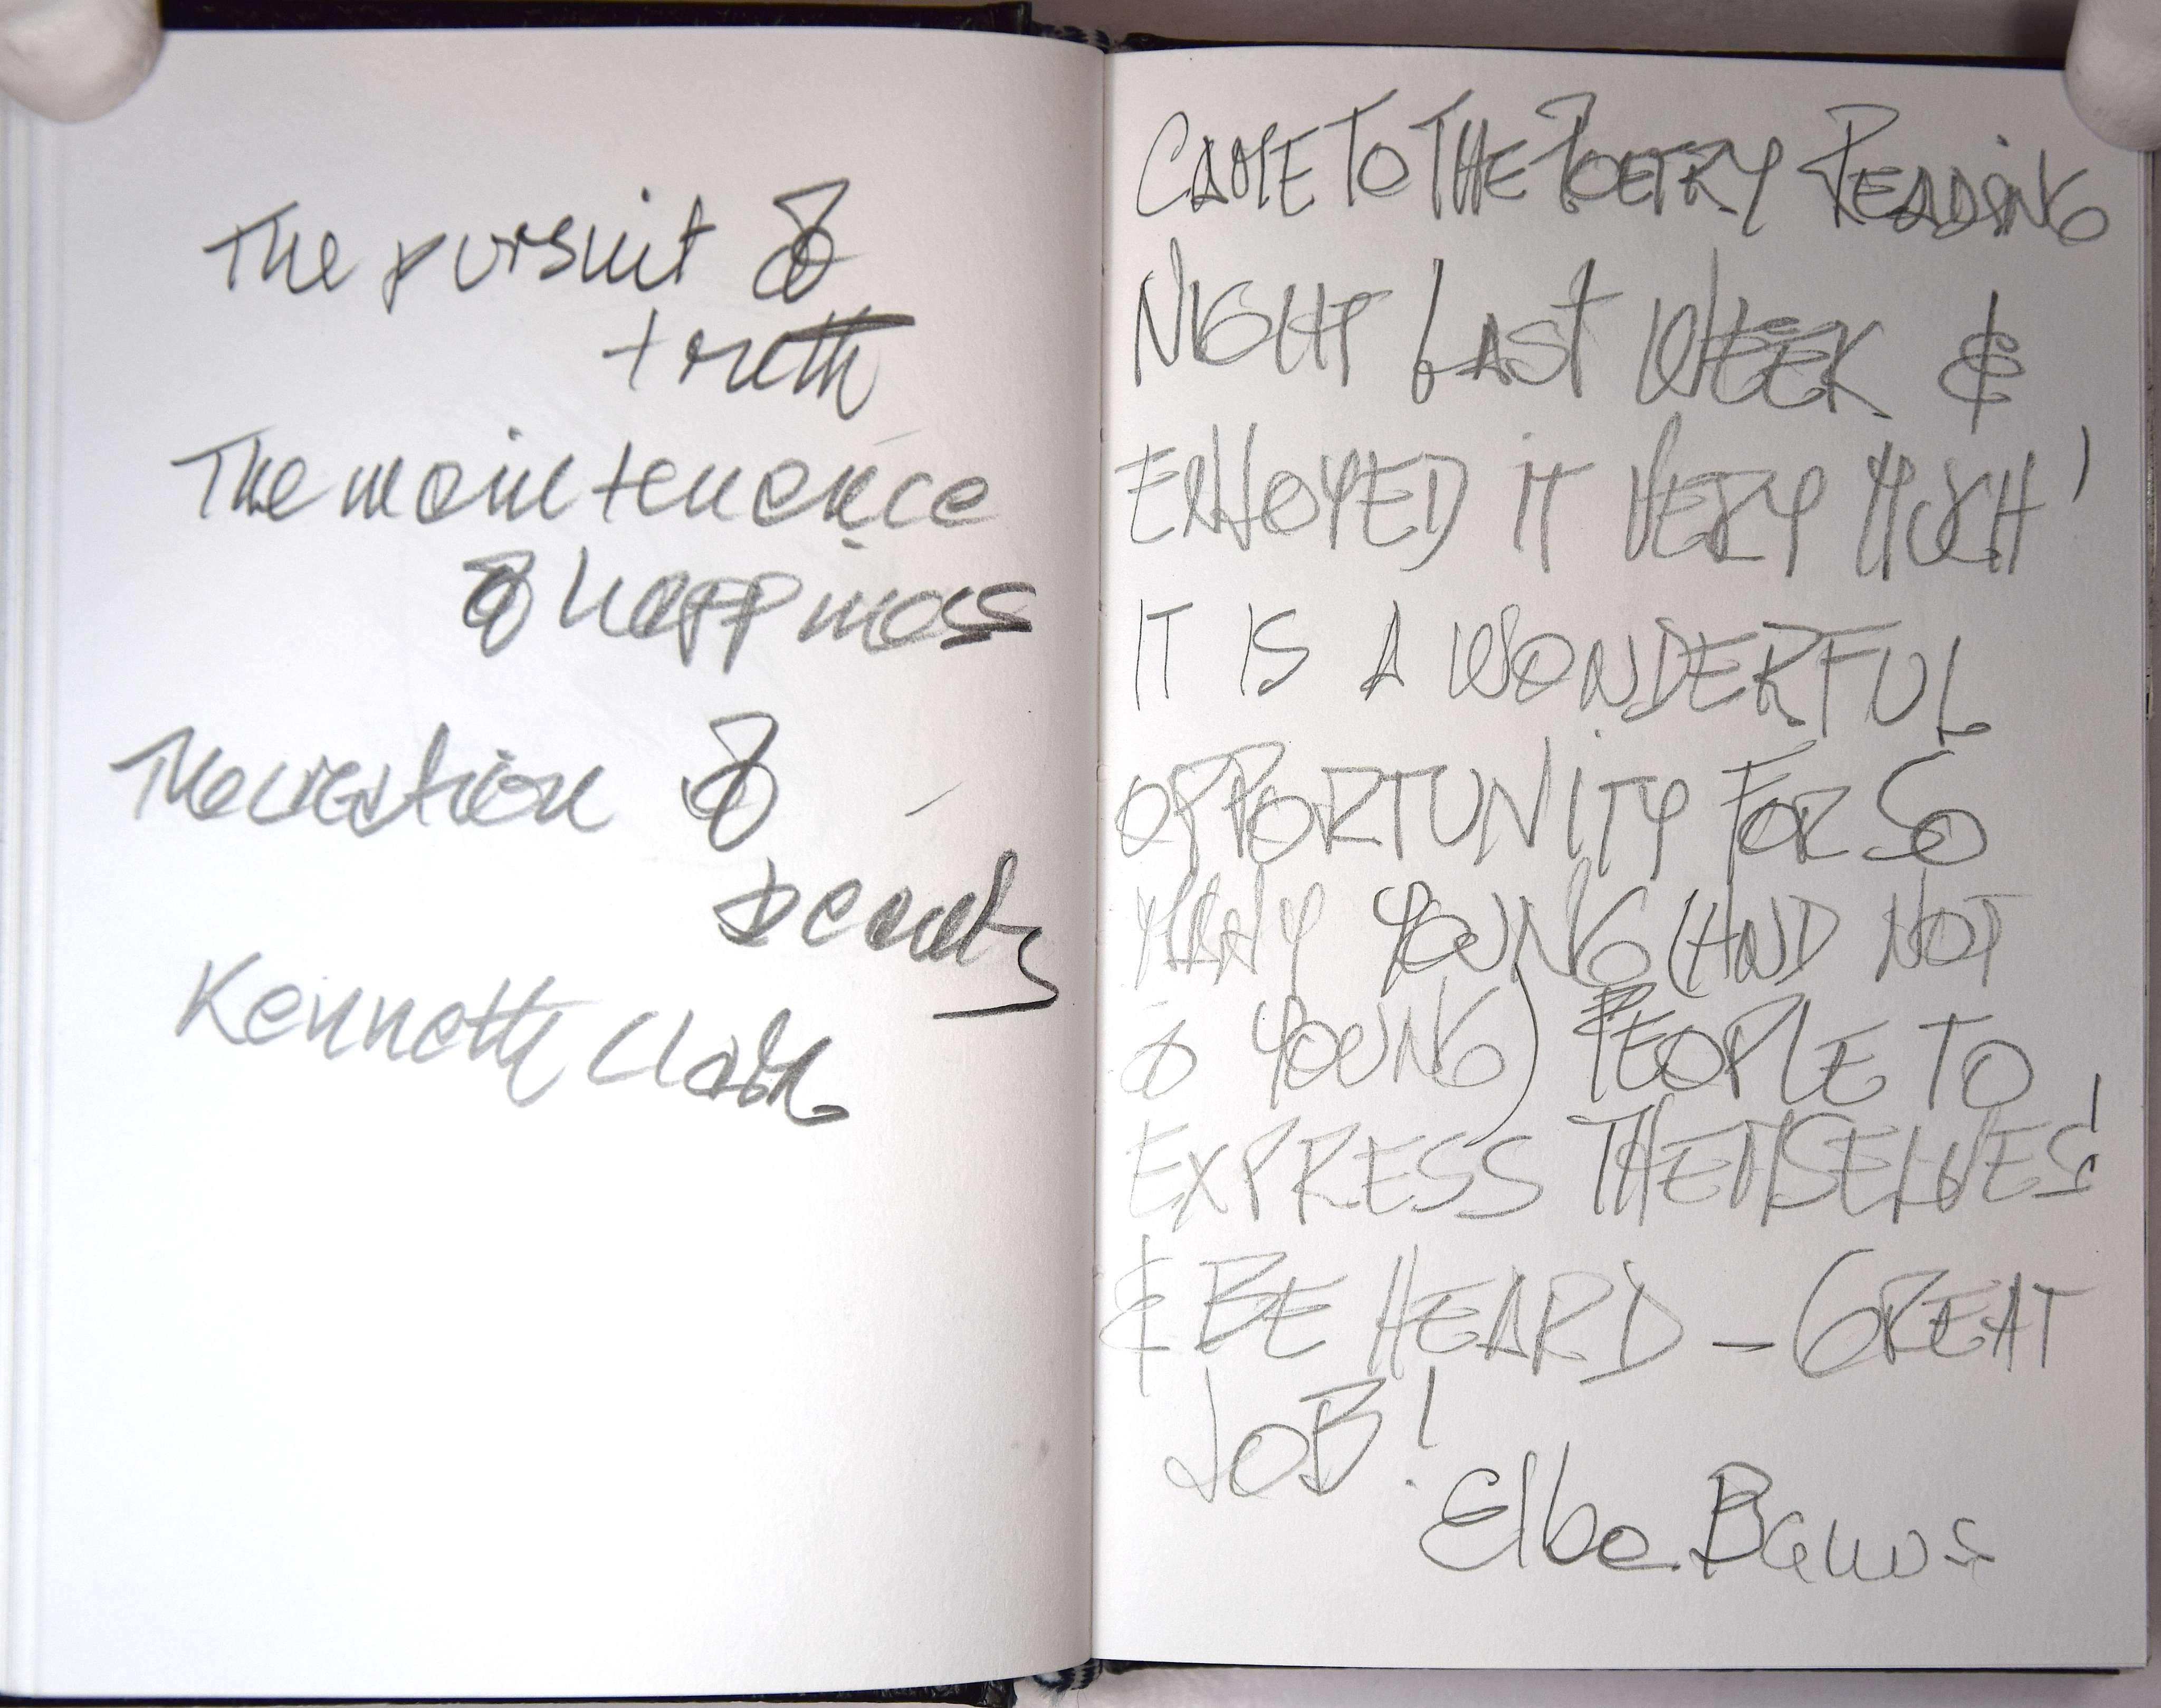 The pursuit of
truth
The maintenence
of happiness
The creation of
beauty
Kenneth Clark
CAME TO THE POETRY READING
NIGHT LAST WEEK &
ENJOYED IT VERY MUCH!
IT IS A WONDERFUL
OPPORTUNITY FOR SO
MANY YOUNG (AND NOT
SO YOUNG) PEOPLE TO
EXPRESS THEMSELVES!
& BE HEARD – GREAT
JOB!